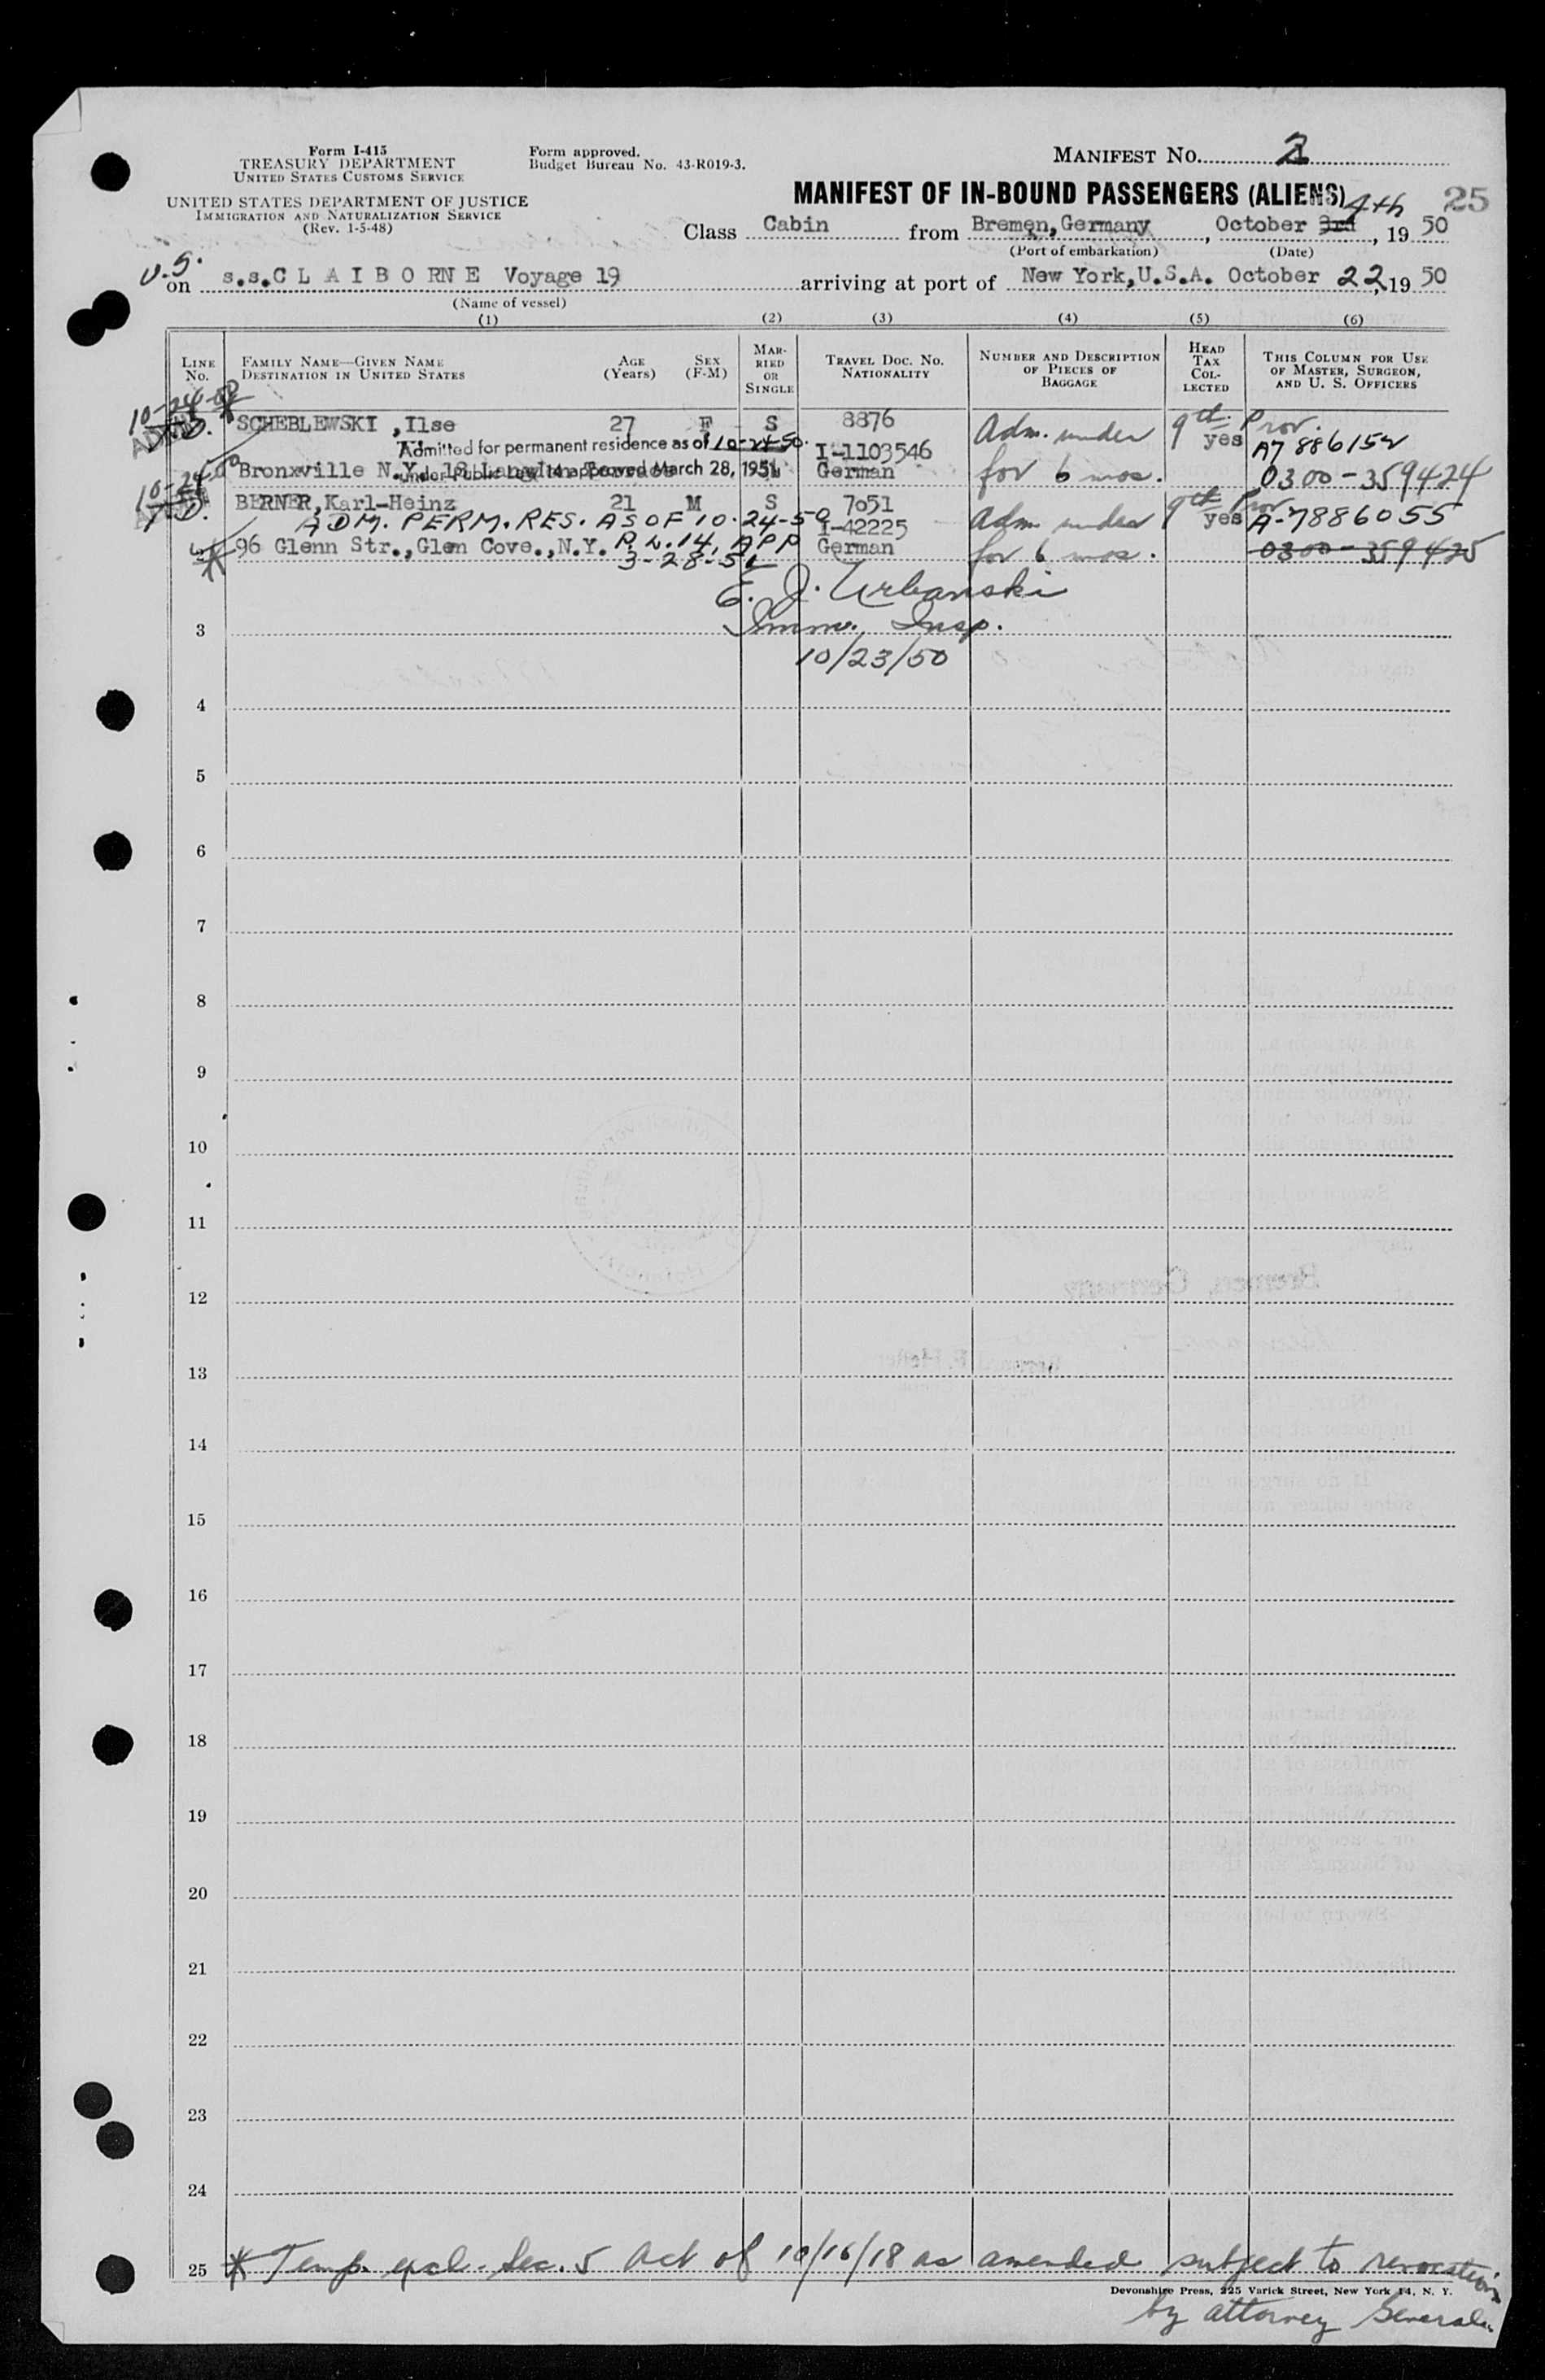 Form I-415
TREASURY DEPARTMENT
UNITED STATES CUSTOMS SERVICE
UNITED STATES DEPARTMENT OF JUSTICE
IMMIGRATION AND NATURALIZATION SERVICE
(Rev. 1-5-48)
Form approved.
Budget Bureau No. 43-R019-3.
MANIFEST NO. 2
MANIFEST OF IN-BOUND PASSENGERS (ALIENS) 25
Class Cabin from Bremen, Germany, October 3rd 4th, 19 50
(Port of embarkation) (Date)
U.S.
on s.s. C L A I B O R N E Voyage 19 arriving at port of New York, U.S.A. October 22, 19 50
(Name of vessel)
(1) (2) (3) (4) (5) (6)
LINE NO. FAMILY NAME—GIVEN NAME DESTINATION IN UNITED STATES AGE (Years) SEX (F-M) MARRIED OR SINGLE TRAVEL DOC. NO. NATIONALITY NUMBER AND DESCRIPTION OF PIECES OF BAGGAGE HEAD TAX COLLECTED THIS COLUMN FOR USE OF MASTER, SURGEON, AND U. S. OFFICERS
10-24-50
SCHEBLEWSKI ,Ilse 27 F S 8876 Adm. under 9th Prov.
Admitted for permanent residence as of 10-24-50. I-1103546 yes A7 886152
Bronxville N.Y. 18 German for 6 mos. 0300-359424
under Public Law 14 approved March 28, 1951
10-24-50
BERNER, Karl-Heinz 21 M S 7051 Adm under 9th Prov
ADM. PERM. RES. AS OF 10-24-50 I-42225 yes A-7886055
96 Glenn Str., Glen Cove., N.Y. P.L. 14, APP German for 6 mos. 0300-359425
3-28-51
E. J. Urbanski
3 Imm. Insp.
10/23/50
4
5
6
7
8
9
10
11
12
13
14
15
16
17
18
19
20
21
22
23
24
25 * Temp. excl. Sec. 5 Act of 10/16/18 as amended subject to revocation
Devonshire Press, 225 Varick Street, New York 14, N. Y.
by attorney General.